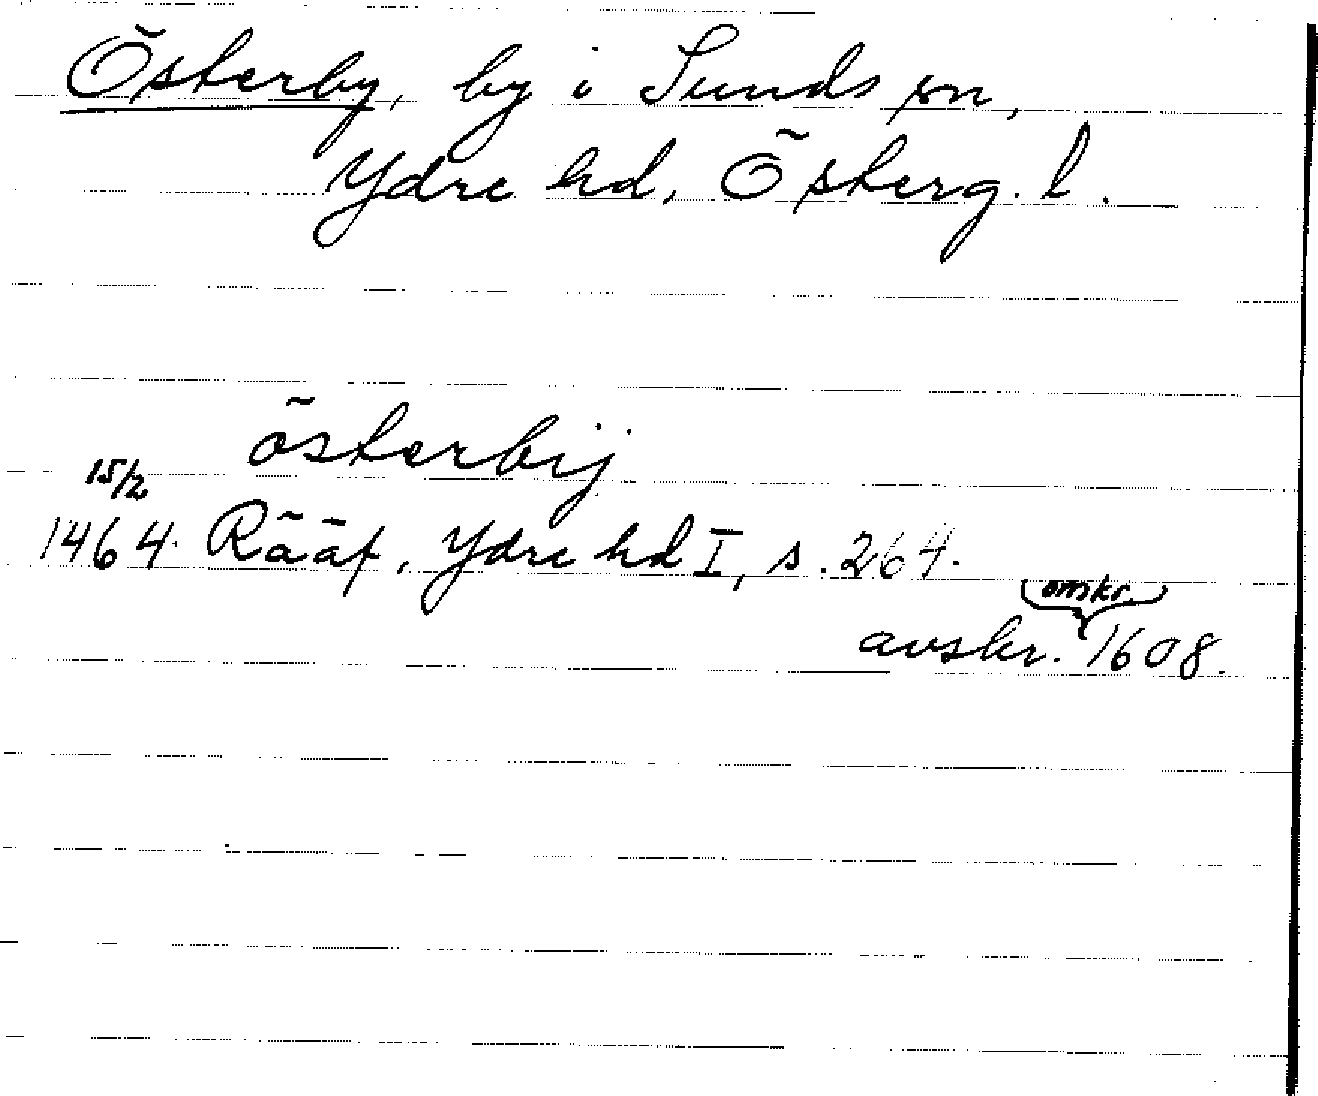 Österby, by i Sunds sn,
Ydre hd, Österg. l.
österbÿ
15/2
1464. Rääf, Ydre hd I, s. 264.
omkr.
avskr. 1608.